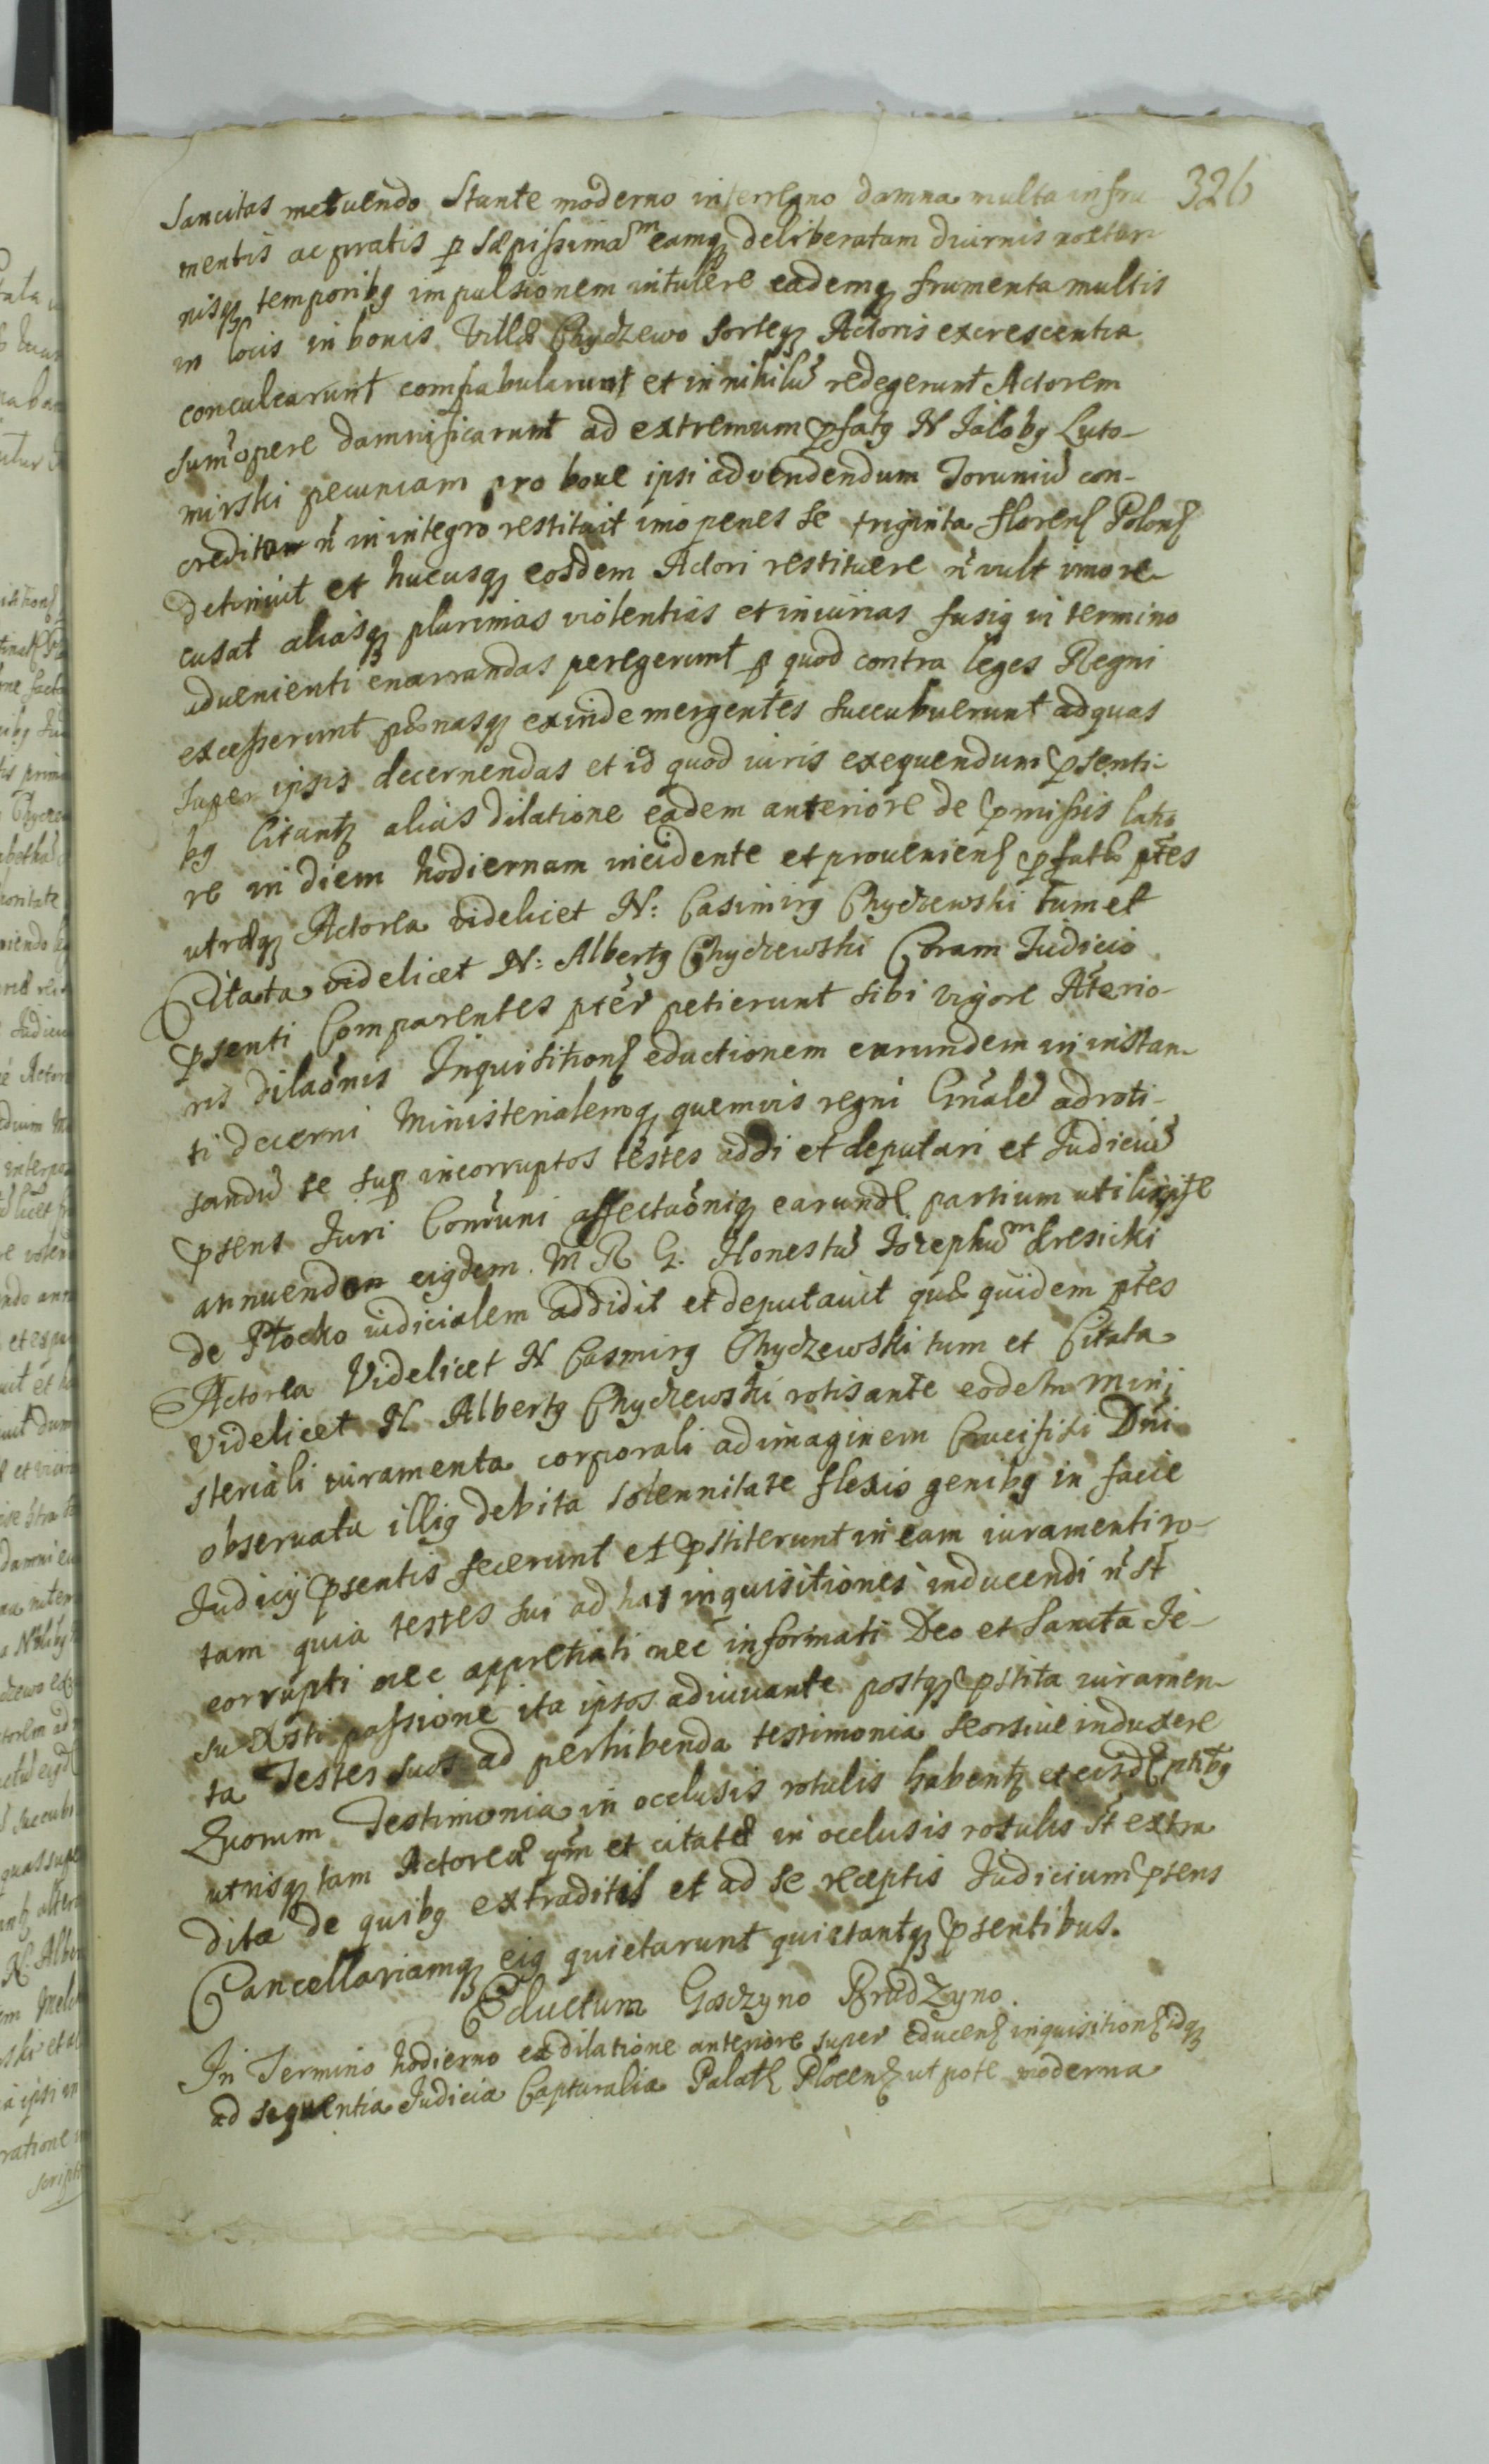 326
Sancitas metuendo stante moderno interregno damna multa in fru
mentis ac pratis p sæpissimam eamq deliberatam diurnis noctur
nisq temporibg impulsionem intulere eademq frumenta multis
in locis in bonis Villæ Chyczewo sorteq Actoris excrescentia
conculcarunt compabularunt et in nihilu redegerunt Actorem
sumopere damnificarunt ad extremum pfatg N Jacobg Luto-
mirski pecuniam pro bove ipsi ad vendendum Toruniu con-
creditam n in integro restituit imo penes se triginta floren Polon
detinuit et hucusq eosdem Actori restituere n vult imo re-
cusat aliasq plurimas violentias et iniurias fusig in termino
advenienti enarrandas peregerunt p quod contra leges Regni
excesserunt pænasq exinde mergentes succubuerunt ad quas
super ipsis decernendas et id quod iuris exequendum psenti-
bg citant alias dilatione eadem anteriore de pmissis latio
re in diem hodiernam incidente et provenien pfatæ ptes
utræq Actorea videlicet N: Casimirg Chyczewski tum et
Citata videlicet N: Albertg Chyczewski Coram Judicio
psenti Comparentes pter petierunt sibi vigore Anterio-
ris dilaonis Inquisition eductionem earundem in instan-
ti decerni Ministerialemq quemvis regni Gnale ad roti-
sandu se sup incorruptos testes addi et deputari et Judiciu
psens Juri Comuni affectaoniq earund partium utili ipse
annuendo eigdem. M R G. Honestu Josephum Kresicki
de Plocko iudicialem addidit et deputavit quæ quidem ptes
Actorea Videlicet N Casmirg Chyczewski tum et Citata
Videlicet N Albertg Chyczewski rotisante eodem Mini
steriali iuramenta corporali ad imaginem Crucifixi Dni
observata illig debita solennitate flexis genibg in facie
Judicij psentis fecerunt et pstiterunt in eam iuramenti ro-
tam quia testes sui ad has inquisitiones inducendi n st
corrupti nec appretiati nec informati Deo et Sancta Je-
su Xsti passione ita ipsos adiuvante postq pstita iuramen-
ta Testes suos ad perhibenda testimonia seorsive induxere
Quorum Testimonia in occlusis rotulis habent et eisd ptibg
utrisq tam Actoreæ qm et citatæ in occlusis rotulis st extra
ditæ de quibg extraditis et ad se receptis Judicium psens
Cancellariamq eig quietarunt quietantq psentibus.
Eductum Goszyno Brudzyno.
In Termino hodierno ex dilatione anteriore super educen inquisition idq
ad sequentia Judicia Capturalia Palat Plocen ut pote moderna